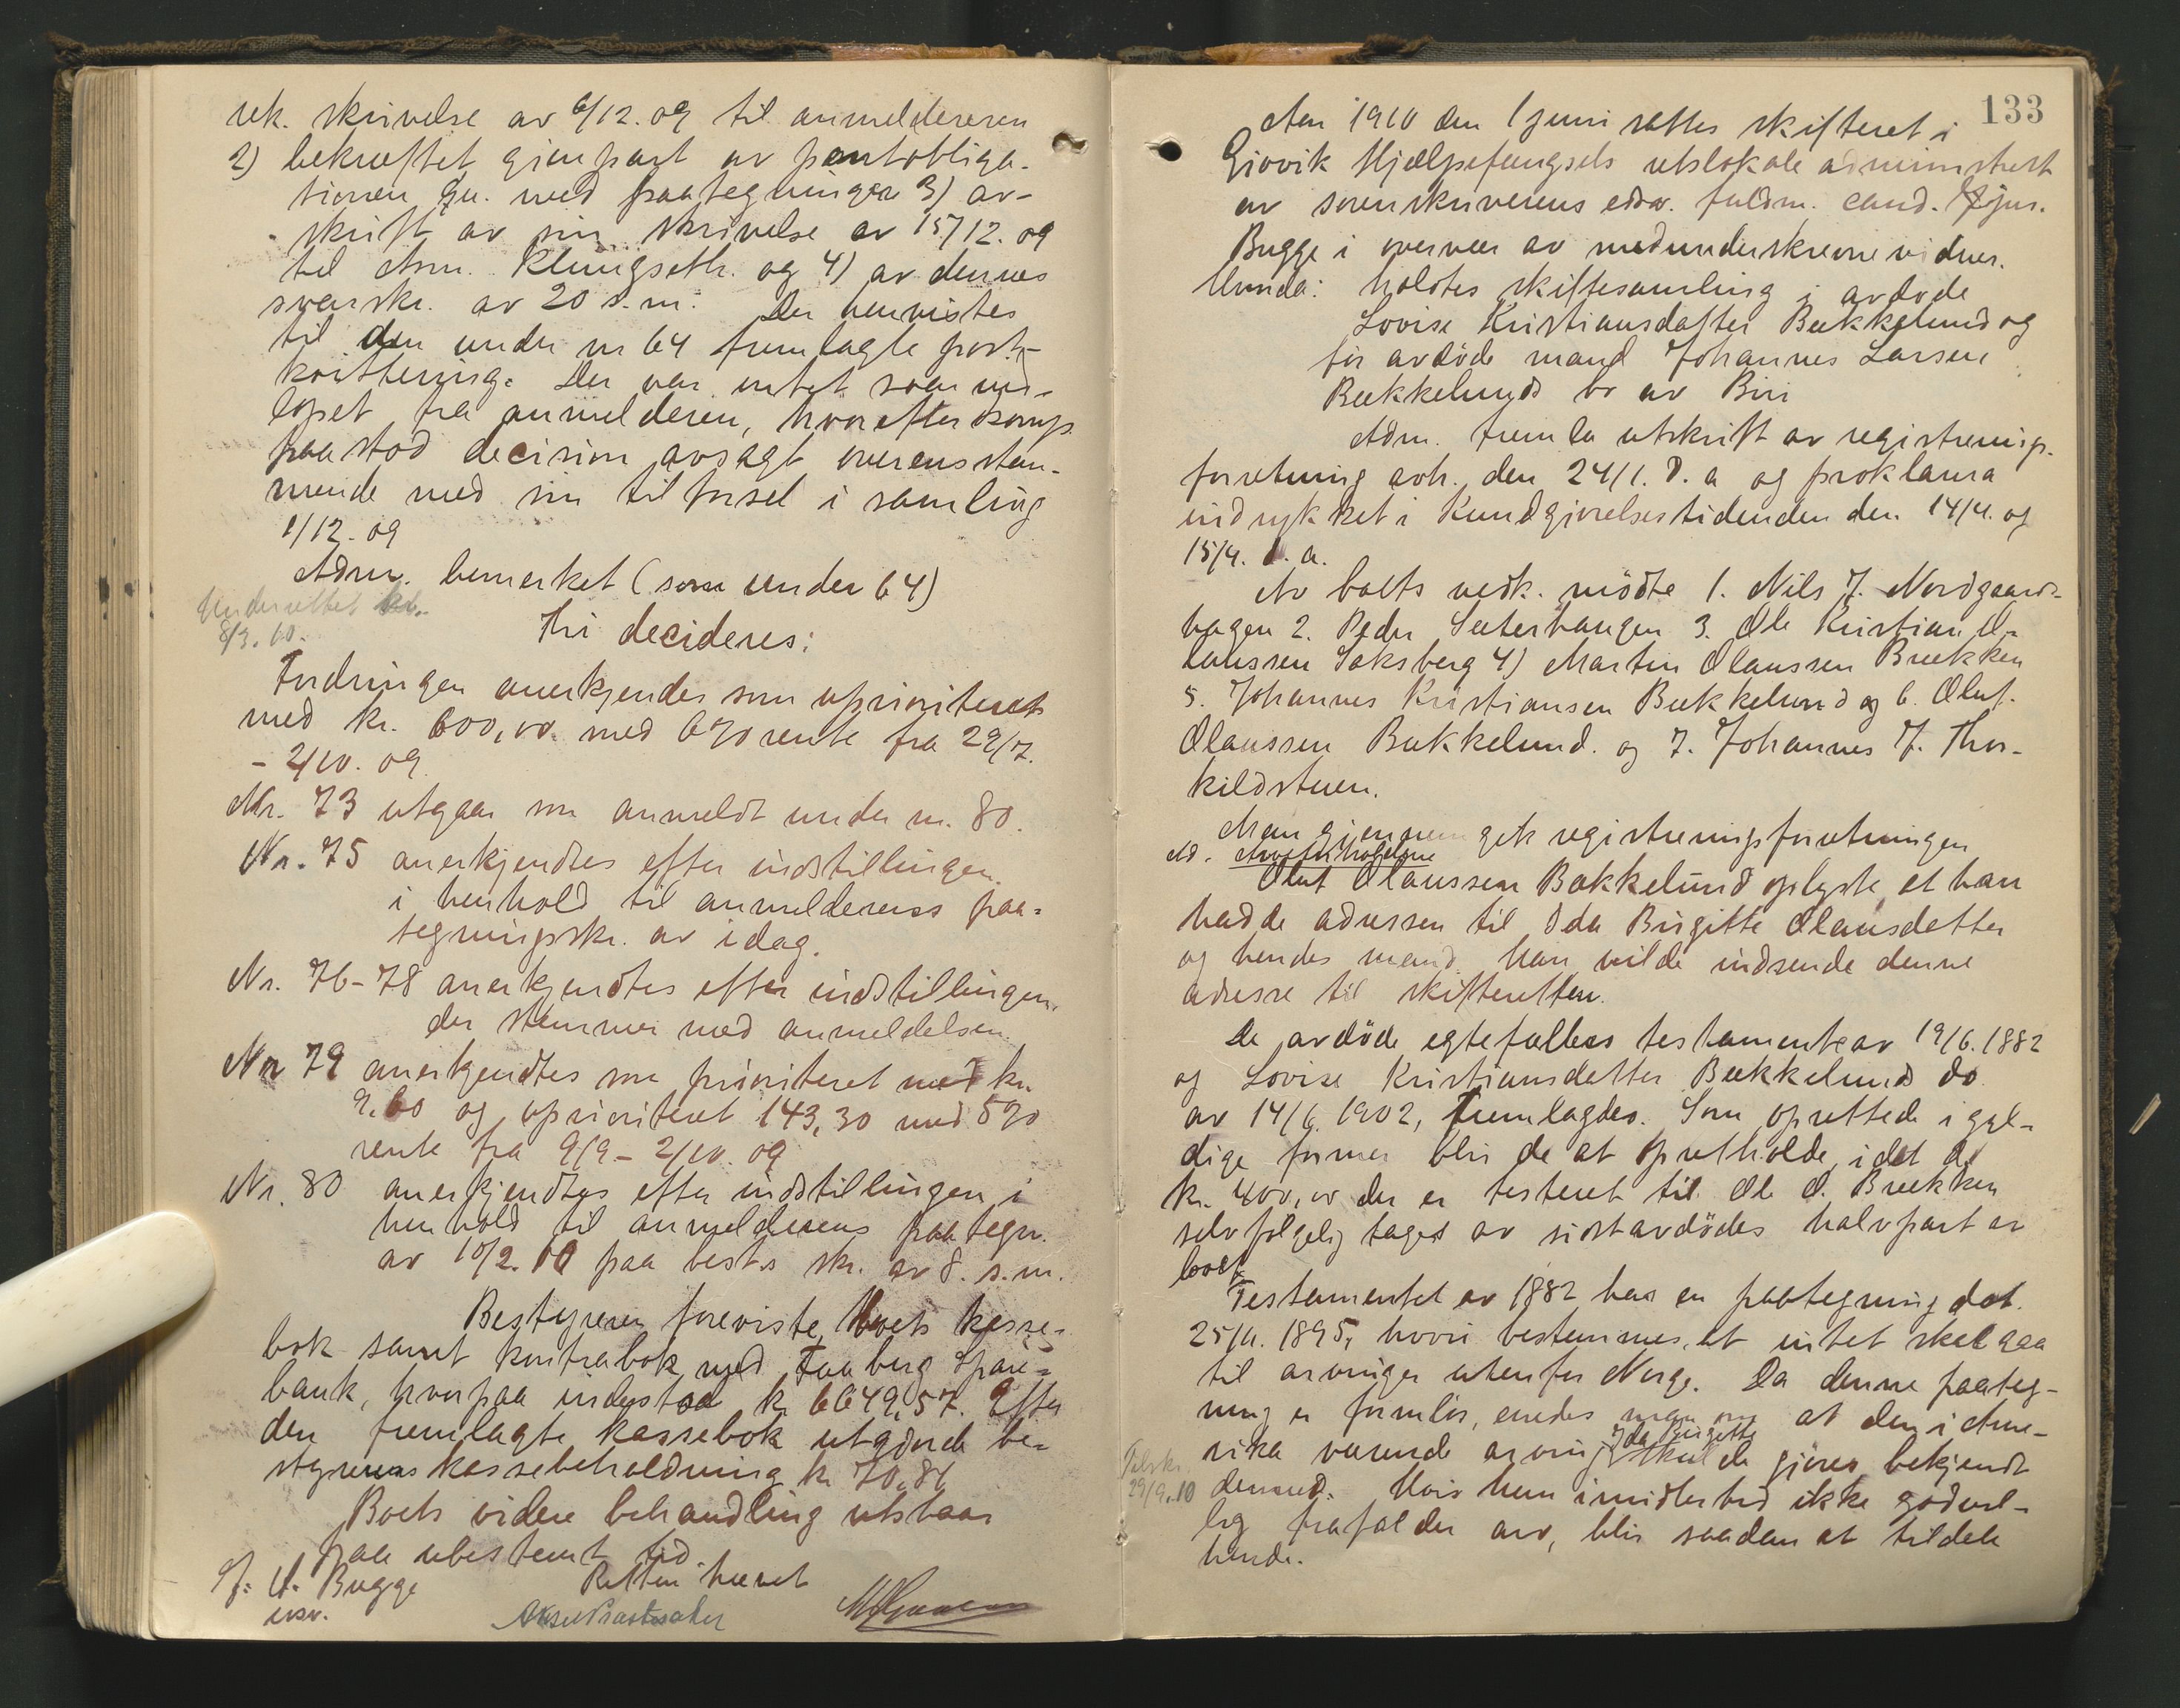 rek. skrivelse av 6/12. 09 til anmelderen
2) bekræftet gjenpart av pantobliga-
tionen qu. med paategninger 3) av-
skrift av sin skrivelse av 15/12. 09
til Adm. Klingseth. og 4) av dennes
svarskr. av 20 s. m. Der henvistes
til den under nr 64 fremlagte post-
kvittering. Der var intet svar ind-
løpet fra anmelderen, hvorefter komp.
paastod decision avsagt overensstem-
mende med sin tilførsel i samling
1/12. 09
Adm. bemerket (som under 64)
Underrettet
8/3. 10.
Thi decideres:
Fordringen anerkjendes som uprioritert
med kr. 600,00 med 6% rente fra 29/7.
- 2/10. 09
Nr. 73 utgaar som anmeldt under nr. 80.
Nr. 75 anerkjendtes efter indstillingen.
i henhold til anmelderens paa-
tegningskr. av idag.
Nr. 76-78 anerkjendtes efter indstillingen,
der stemmer med anmeldelsen
Nr 79 anerkjendtes som prioriteret med kr.
9.60 og uprioriteret 143,30 med 5%
rente fra 9/9 - 2/10. 09
Nr. 80 anerkjendtes efter indstillingen, i
henhold til anmelderens paategn.
av 10/2. 10 paa best.s skr. av 8. s. m.
Bestyreren foreviste boets kasse-
bok samt kontrabok med Faaberg Spare-
bank, hvorpaa indestod kr 6649,57. Efter
den fremlagte kassebok utgjorde be-
styrerens kassebeholdning kr 70,86
Boets videre behandling utstaar
paa ubestemt tid.
Retten hævet
J. U. Bugge
133
Aar 1910 den 1 juni sattes skifteret i
Gjøvik Hjælpefængsels retslokale administrert
av sorenskriverens edsv. fuldm. cand. jur.
Bugge i overvær av medunderskrevne vidner.
Hvorda: holdtes skiftesamling i avdøde
Lovise Kristiansdatter Bækkelund og
før avdøde mand Johannes Larsen
Bækkelunds bo av Biri
Adm. fremla utskrift av registrerings-
forretning avh. den 24/1. d. a og proklama
indrykket i Kundgjørelsestidenden den 14/4. og
15/4. d. a.
Av boets vedk. mødte 1. Nils J. Nordgaards-
hagen 2. Peder Sæterhaugen 3. Ole Kristian O-
laussen Saksberg 4) Martin Olaussen Brækken
5. Johannes Kristiansen Bækkelund og 6. Oluf
Olaussen Bækkelund. og 7. Johannes J. Thor-
kildstuen.
Man gjennemgik registreringsforretningen
Ad. Arveforholdene
Oluf Olaussen Bækkelund oplyste, at han
hadde adressen til Ida Birgitte Olausdatter
og hendes mand. Han vilde indsende denne
adresse til skifteretten.
De avdøde egtefællers testamente av 19/6. 1882
og Lovise Kristiansdatter Bækkelunds do
av 14/6. 1902, fremlagdes. Som oprettede i gyl-
dige former blir de at opretholde, idet de
kr. 400,00 der er testeret til Ole O. Brækken
selvfølgelig tages av sidstavdødes halvpart av
boet.
Testamentet av 1882 har en paategning dat.
25/11. 1895, hvori bestemmes, at intet skal gaa
til arvinger utenfor Norge. Da denne paateg-
ning er formløs, enedes man om at den i Ame-
rika værende arving Ida Birgitte skulde gjøres bekjendt
29/9. 10
dermed. Hvis hun imidlertid ikke godvil-
lig frafalder arv, blir saadan at tildele
hende.